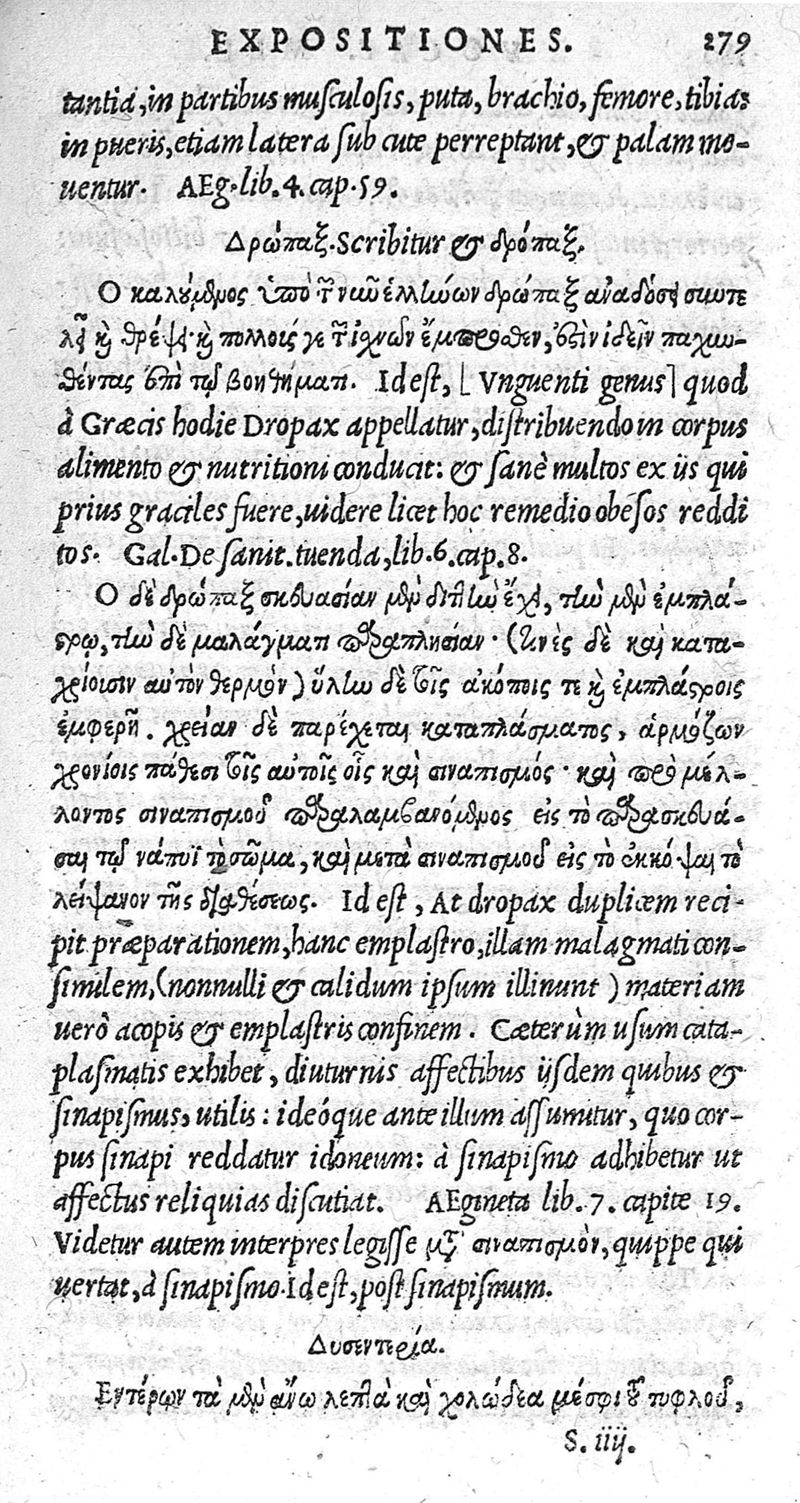 EXPOSITIONES. 279
tantia, in partibus musculosis, puta, brachio, femore, tibia:
in pueris, etiam latera sub cute perreptant, & palam mo-
uentur. AEg. lib. 4. cap. 59.
Δρώπαξ. Scribitur & δρόπαξ.
Ο καλούμενος ὑπὸ τῶν νεωτέρων ἑλλήνων δρώπαξ ἀναδόσει συντε
λεῖ καὶ θρέψει· καὶ πολλούς γε τῶν ἰσχνῶν ἔμπροσθεν, ἔστιν ἰδεῖν παχυν-
θέντας ἐπὶ τῷ βοηθήματι. Id est, [Vnguenti genus] quod
à Græcis hodie Dropax appellatur, distribuendo in corpus
alimento & nutritioni conducit: & sanè multos ex ijs qui
prius graciles fuere, uidere licet hoc remedio obésos reddi
tos. Gal. De sanit. tuenda, lib. 6. cap. 8.
Ο δὲ δρώπαξ σκευασίαν μὲν διττὴν ἔχει, τὴν μὲν ἐμπλά-
στρῳ, τὴν δὲ μαλάγματι παραπλησίαν· (τινὲς δὲ καὶ κατα-
χρίουσιν αὐτὸν θερμὸν) ὕλην δὲ τοῖς ἀκόποις τε καὶ ἐμπλάστροις
ἐμφερῆ. χρείαν δὲ παρέχεται καταπλάσματος, ἁρμόζων
χρονίοις πάθεσι τοῖς αὐτοῖς οἷς καὶ σιναπισμός· καὶ πρὸ μέλ-
λοντος σιναπισμοῦ παραλαμβανόμενος εἰς τὸ παρασκευά-
σαι τῷ νάπυϊ τὸ σῶμα, καὶ μετὰ σιναπισμοῦ εἰς τὸ ἐκκόψαι τὸ
λείψανον τῆς διαθέσεως. Id est, At dropax duplicem reci-
pit præparationem, hanc emplastro, illam malagmati con-
similem, (nonnulli & calidum ipsum illinunt) materiam
uerò acopis & emplastris confinem. Cæterùm usum cata-
plasmatis exhibet, diuturnis affectibus ijsdem quibus &
sinapismus, utilis: ideóque ante illum assumitur, quo cor-
pus sinapi reddatur idoneum: à sinapismo adhibetur ut
affectus reliquias discutiat. AEgineta lib. 7. capite 19.
Videtur autem interpres legisse μετὰ σιναπισμὸν, quippe qui
uertat, à sinapismo. Id est, post sinapismum.
Δυσεντερία.
Εντέρων τὰ μὲν ἄνω λεπτὰ καὶ χολώδεα μέσφι τοῦ τυφλοῦ,
S. iiij.